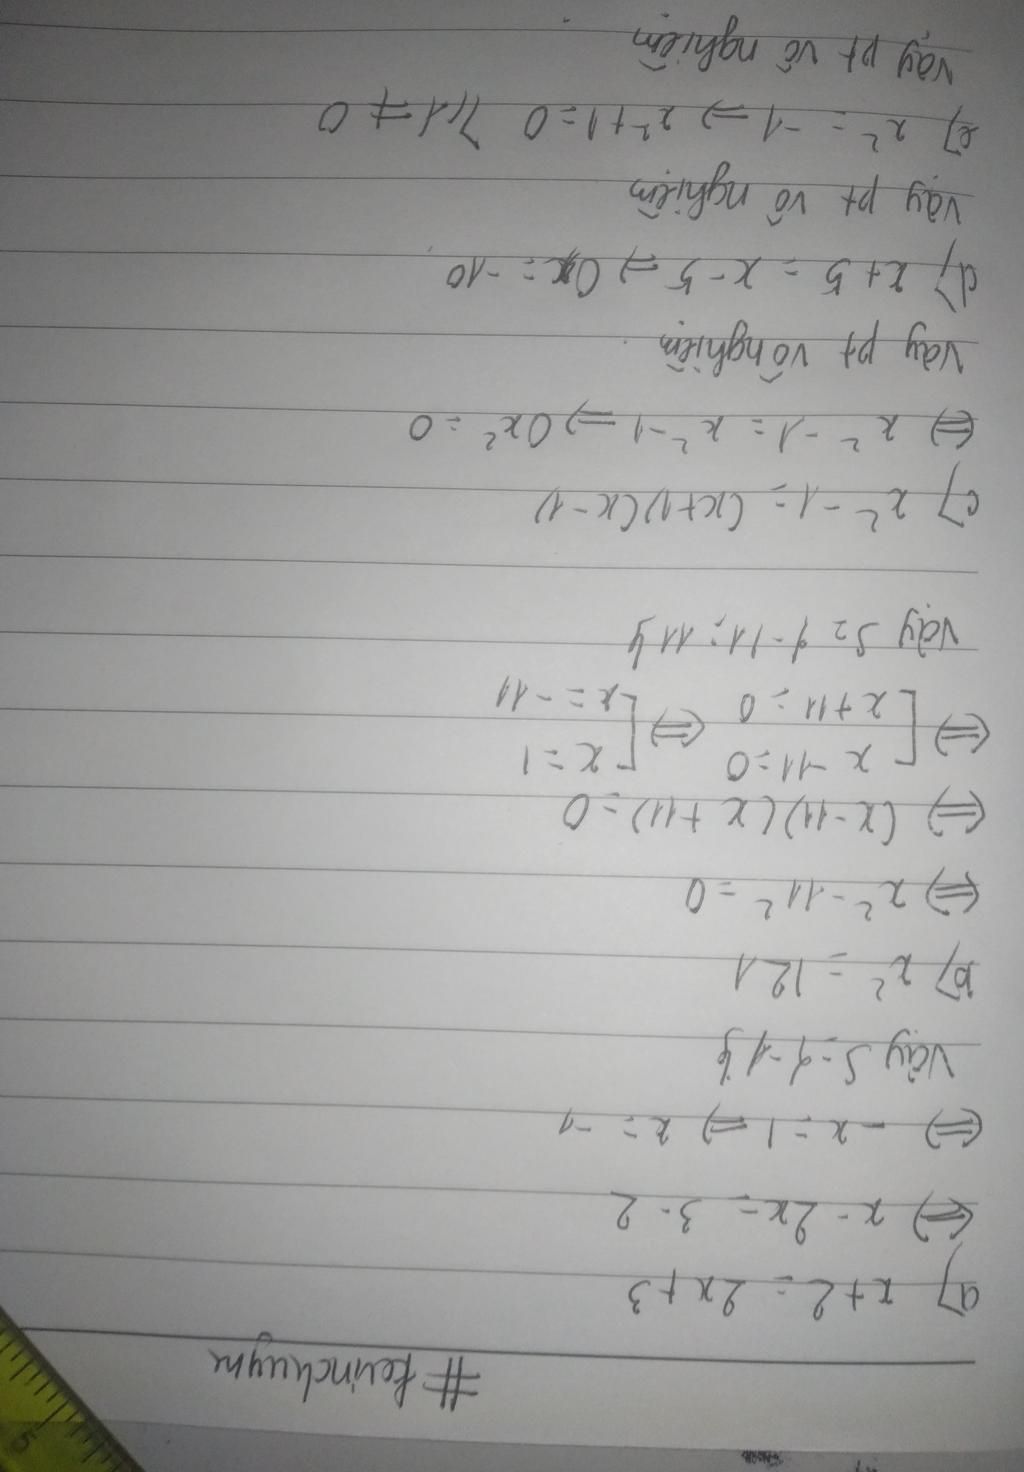 #kevinchuym
a) x + 2 = 2x + 3
⇔ x - 2x = 3 - 2
⇔ - x = 1 ⇒ x = -1
Vậy S = {-1}
b) x² = 121
⇔ x² - 11² = 0
⇔ (x - 11)(x + 11) = 0
⇔ [ x - 11 = 0 ⇔ [ x = 1
x + 11 = 0 x = -11
Vậy S = {-11; 11}
c) x² - 1 = (x+1)(x-1)
⇔ x² - 1 = x² - 1 ⇒ 0x² = 0
Vậy pt vô nghiệm
d) x + 5 = x - 5 ⇒ 0x = -10
Vậy pt vô nghiệm
e) x² = -1 ⇒ x² + 1 = 0 ⩾ 1 ≠ 0
Vậy pt vô nghiệm